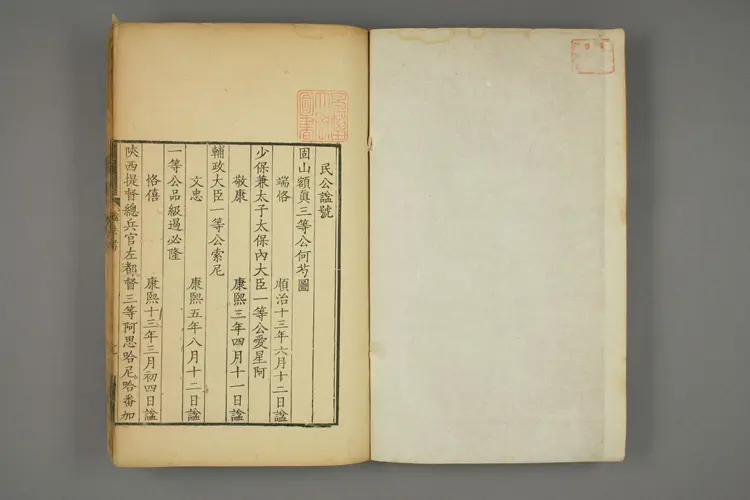 民公諡號
固山額眞三等公何芍圖
端恪 順治十三年六月十二日諡
少保兼太子太保內大臣一等公愛星阿
敬康 康熙三年四月十一日諡
輔政大臣一等公索尼
文忠 康熙五年八月十二日諡
一等公品級遏必隆
恪僖 康熙十三年三月初四日諡
陝西提督總兵官左都督三等阿思哈尼哈番加